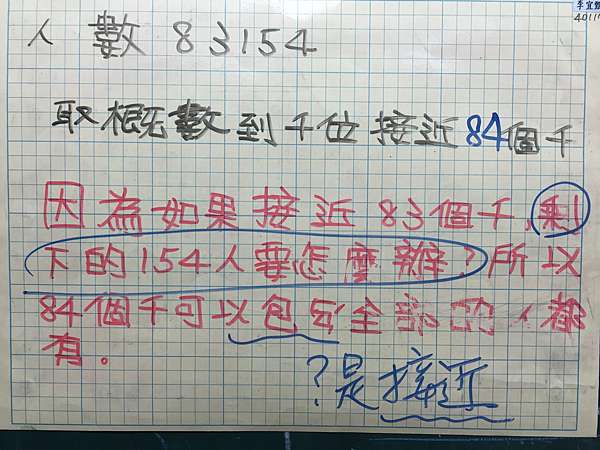 李宜
4011
人數83154
取概數到千位接近84個千
因為如果接近83個千,剩
下的154人要怎麼辦?所以
84個千可以包含全部的人都
有。
?是接近